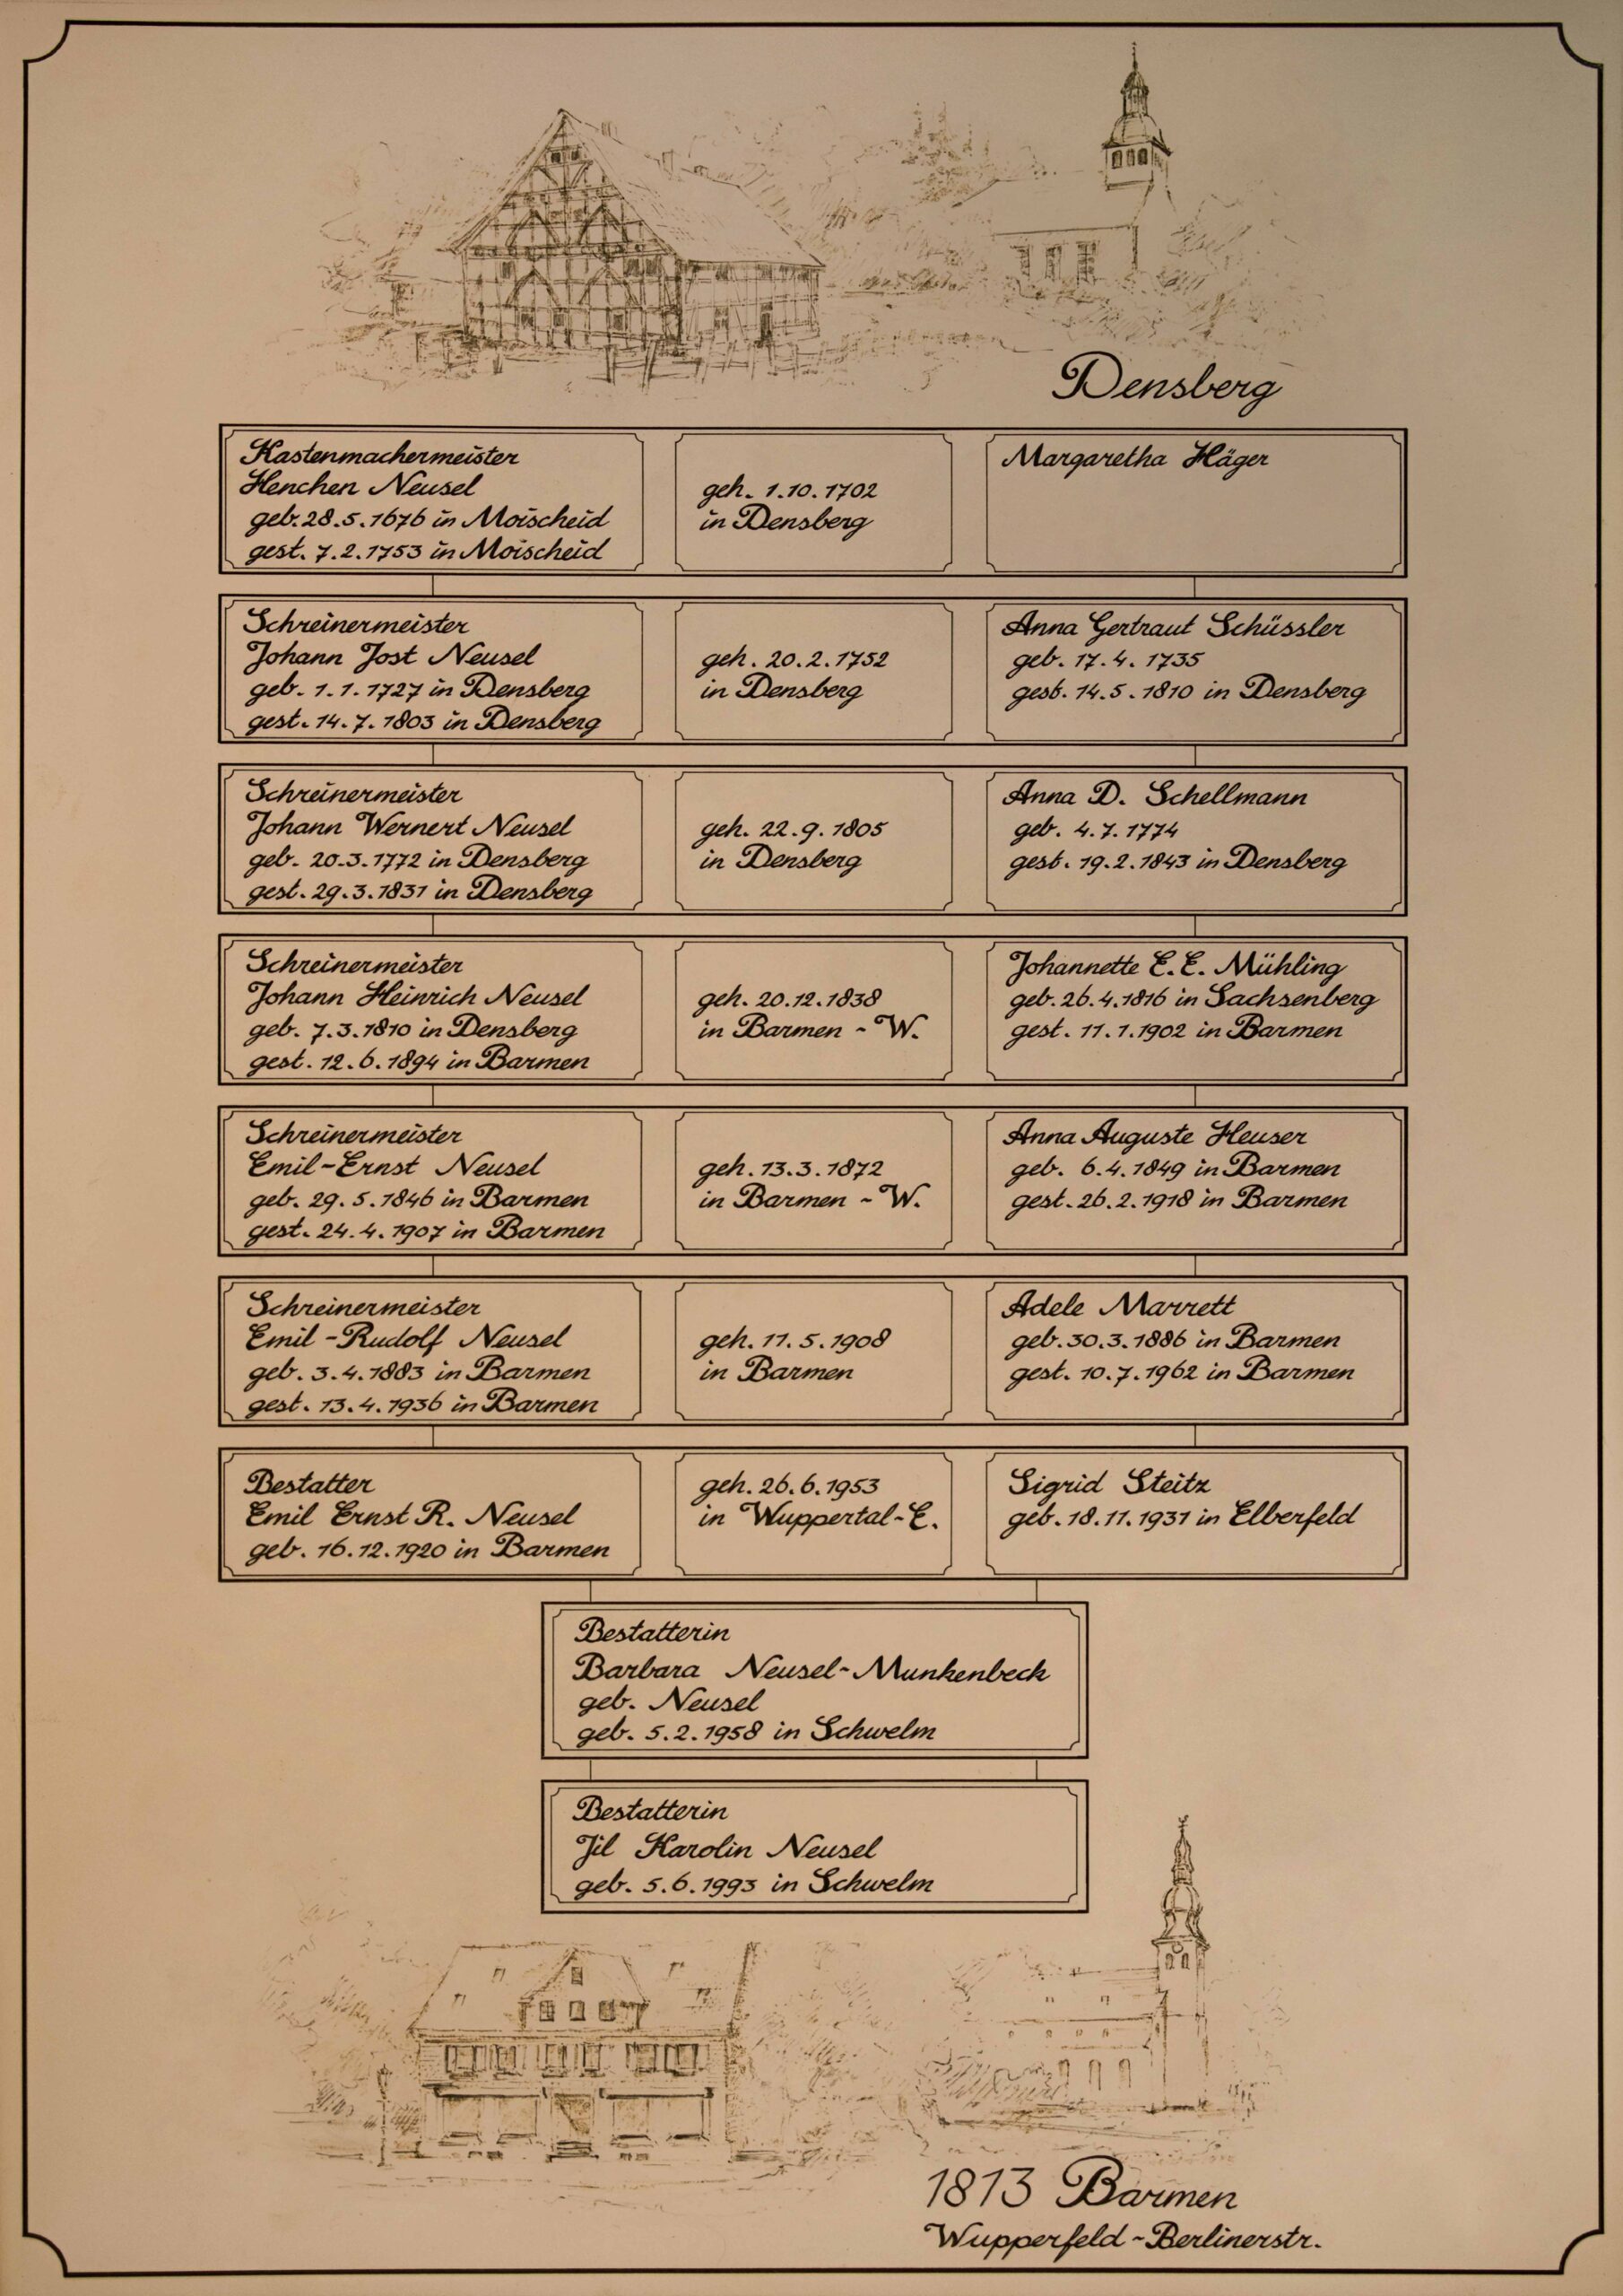 Densberg
Kastenmachermeister
Henchen Neusel
geb. 28.5.1676 in Moischeid
gest. 7.2.1753 in Moischeid
geh. 1.10.1702
in Densberg
Margaretha Häger
Schreinermeister
Johann Jost Neusel
geb. 1.1.1727 in Densberg
gest. 14.7.1803 in Densberg
geh. 20.2.1752
in Densberg
Anna Gertraut Schüssler
geb. 17.4.1735
gest. 14.5.1810 in Densberg
Schreinermeister
Johann Wernert Neusel
geb. 20.3.1772 in Densberg
gest. 29.3.1831 in Densberg
geh. 22.9.1805
in Densberg
Anna D. Schellmann
geb. 4.7.1774
gest. 19.2.1843 in Densberg
Schreinermeister
Johann Heinrich Neusel
geb. 7.3.1810 in Densberg
gest. 12.6.1894 in Barmen
geh. 20.12.1838
in Barmen - W.
Johannette E.E. Mühling
geb. 26.4.1816 in Sachsenberg
gest. 11.1.1902 in Barmen
Schreinermeister
Emil-Ernst Neusel
geb. 29.5.1846 in Barmen
gest. 24.4.1907 in Barmen
geh. 13.3.1872
in Barmen - W.
Anna Auguste Heuser
geb. 6.4.1849 in Barmen
gest. 26.2.1918 in Barmen
Schreinermeister
Emil-Rudolf Neusel
geb. 3.4.1883 in Barmen
gest. 13.4.1936 in Barmen
geh. 11.5.1908
in Barmen
Adele Marrett
geb. 30.3.1886 in Barmen
gest. 10.7.1962 in Barmen
Bestatter
Emil Ernst R. Neusel
geb. 16.12.1920 in Barmen
geh. 26.6.1953
in Wuppertal-E.
Sigrid Steitz
geb. 18.11.1931 in Elberfeld
Bestatterin
Barbara Neusel-Munkenbeck
geb. Neusel
geb. 5.2.1958 in Schwelm
Bestatterin
Jil Karolin Neusel
geb. 5.6.1993 in Schwelm
1813 Barmen
Wupperfeld-Berlinerstr.